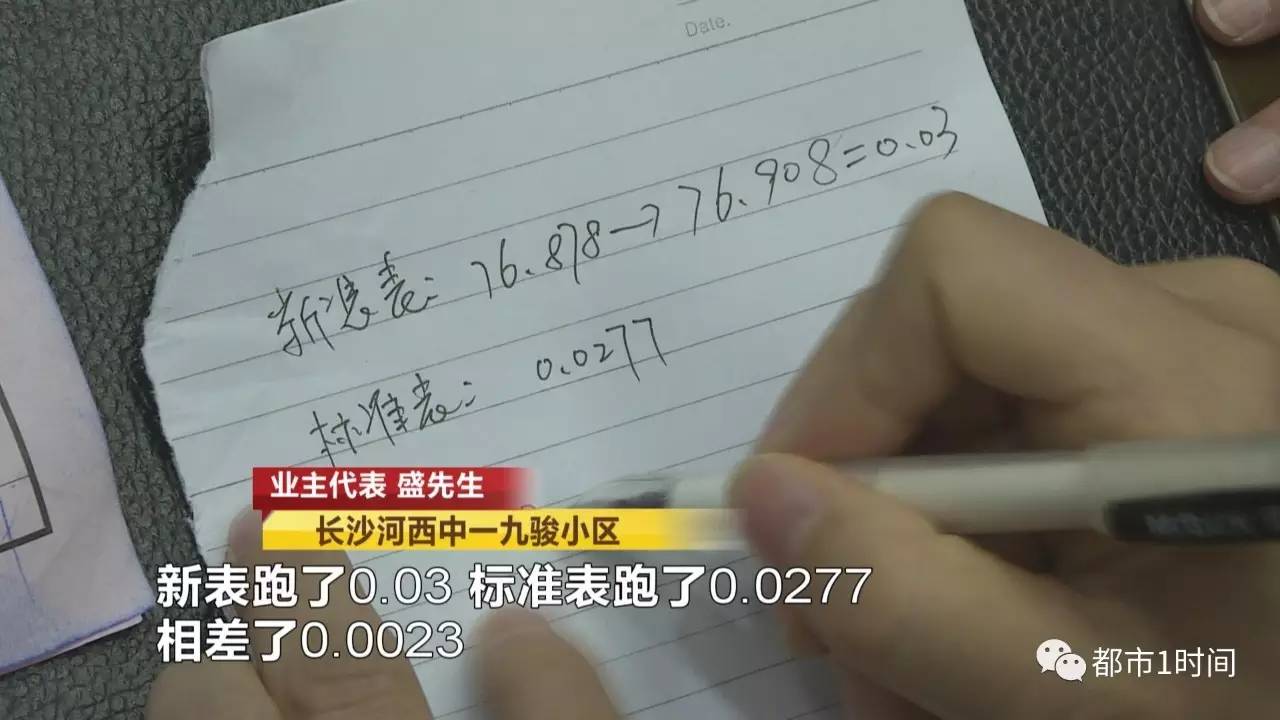 Date.
新准表: 76.878→76.908=0.03
标准表: 0.0277
业主代表 盛先生
长沙河西中一九骏小区
新表跑了0.03 标准表跑了0.0277
相差了0.0023
都市1时间